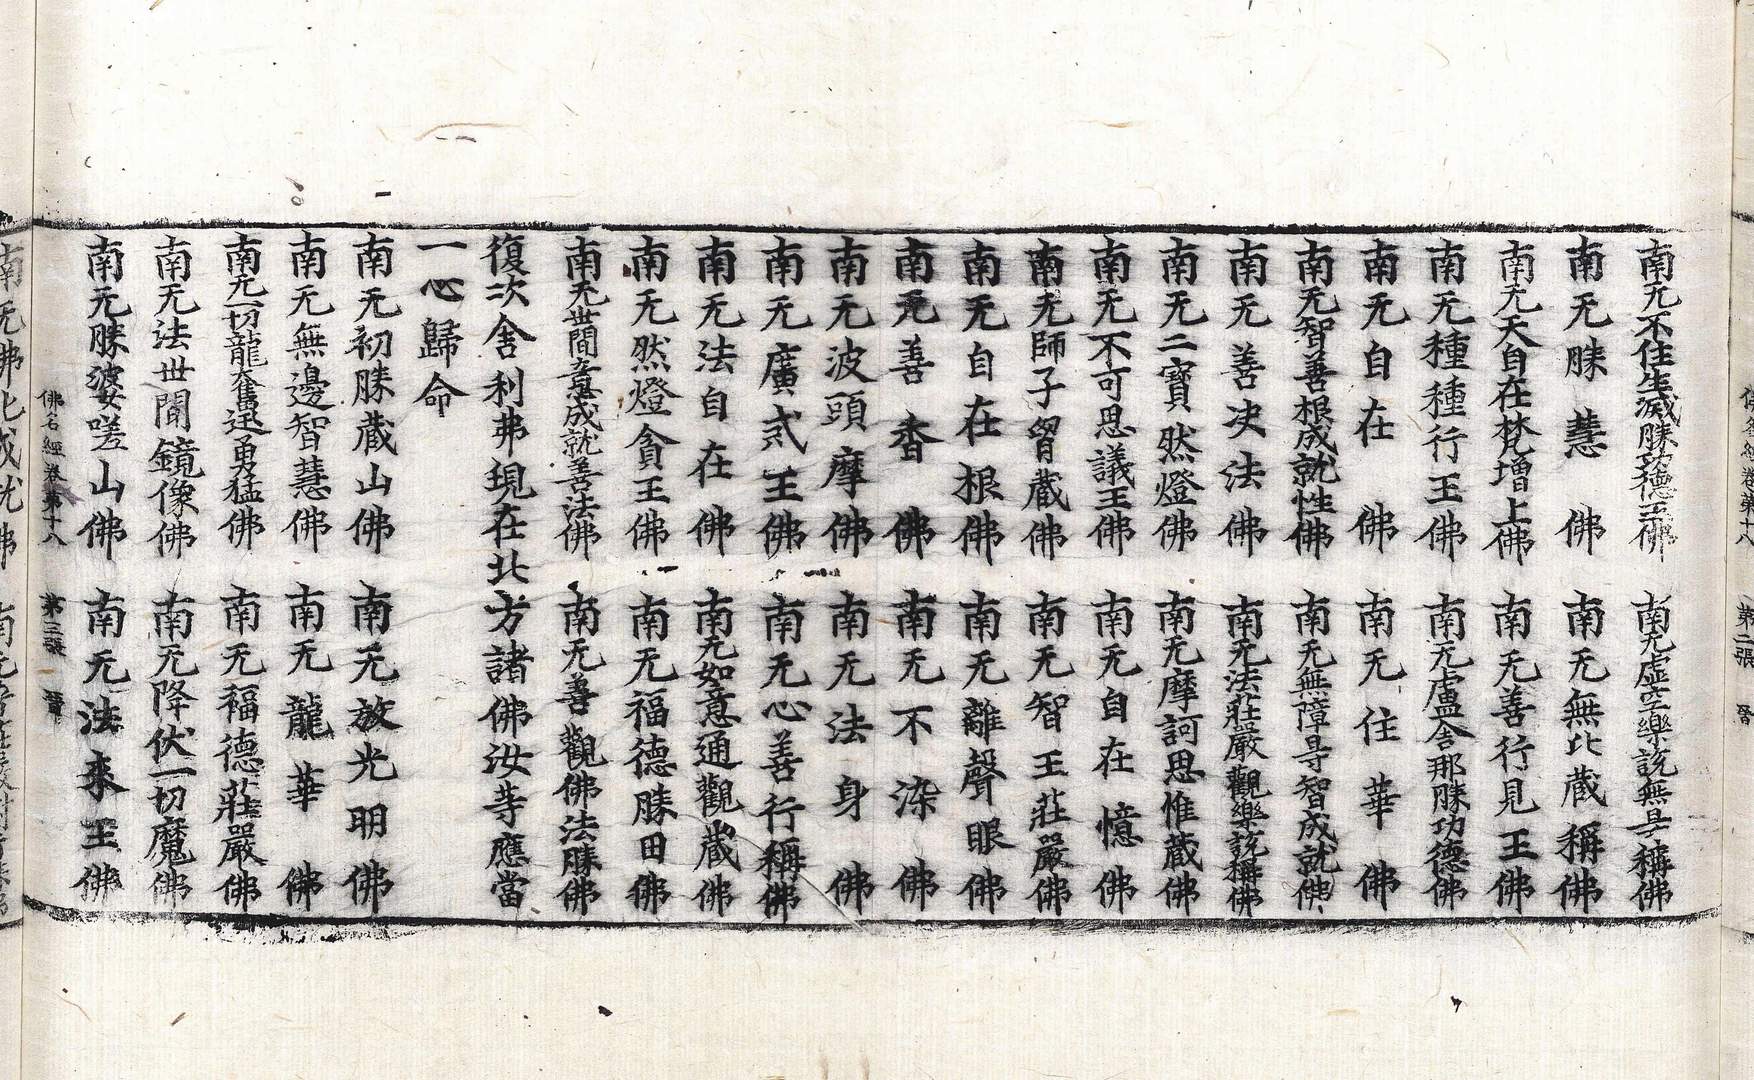 南无不住生滅勝功德王佛 南无虛空樂說無㝵稱佛
南无勝慧佛 南无無比藏稱佛
南无天自在梵增上佛 南无善行見王佛
南无種種行王佛 南无盧舍那勝功德佛
南无自在佛 南无住華佛
南无智善根成就性佛 南无無障㝵智成就佛
南无善决法佛 南无法莊嚴觀樂說稱佛
南无二寶然燈佛 南无摩訶思惟藏佛
南无不可思議王佛 南无自在憶佛
南无師子𦛗藏佛 南无智王莊嚴佛
南无自在根佛 南无離聲眼佛
南无善香佛 南无不染佛
南无波頭摩佛 南无法身佛
南无廣貳王佛 南无心善行稱佛
南无法自在佛 南无如意通觀藏佛
南无然燈貪王佛 南无福德勝田佛
南无世間立意成就善法佛 南无善觀佛法勝佛
復次舍利弗現在北方諸佛汝等應當
一心歸命
南无初勝藏山佛 南无放光明佛
南无無邊智慧佛 南无龍華佛
南无一切龍奮迅勇猛佛 南无福德莊嚴佛
南无法世間鏡像佛 南无降伏一切魔佛
南无勝婆嗟山佛 南无法來王佛
佛名經卷第十八 第三張 晉